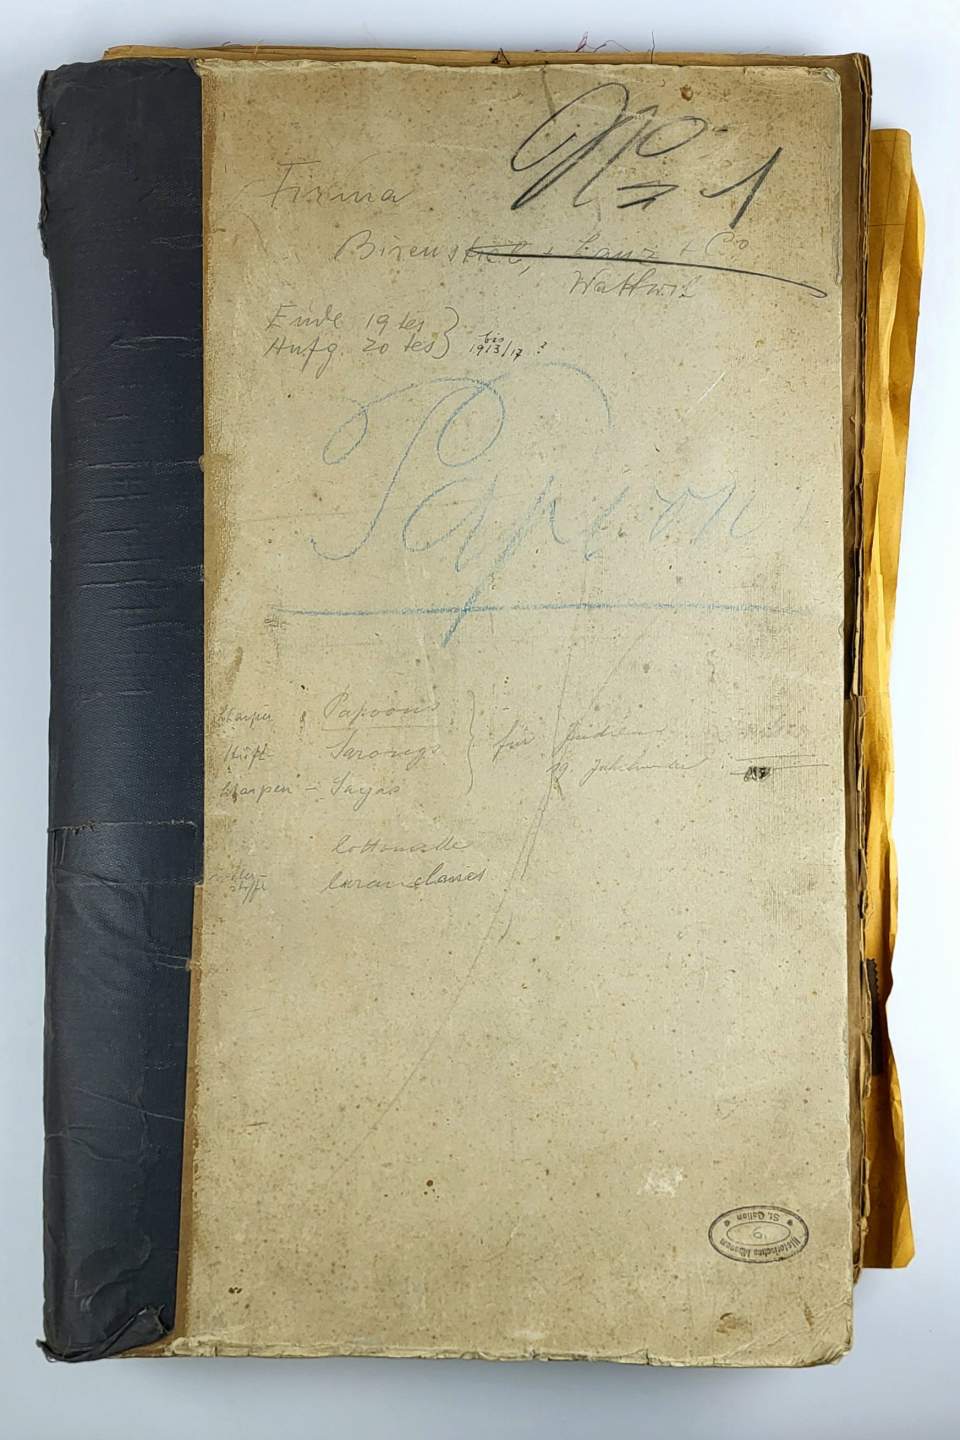 No 1
Firma
Birenstiel, + Lanz + Co
Wattwil
Ende 19 tes }
Anfg. 20 tes } bis 1913/17 ?
Papoon
Papoons }
Hüft Sarongs } für Indien
Scharpen - Sayas } 19. Jahrhundert
Cottonelle
stoffe
Historisches Museum
St. Gallen